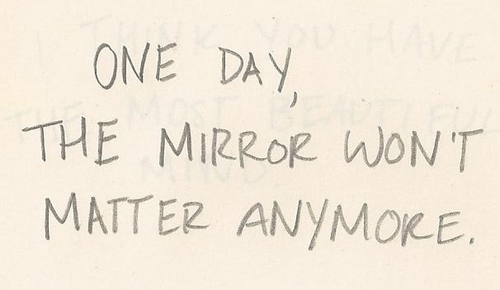 I THINK YOU HAVE
THE MOST BEAUTIFUL
MIND
ONE DAY,
THE MIRROR WON'T
MATTER ANYMORE.